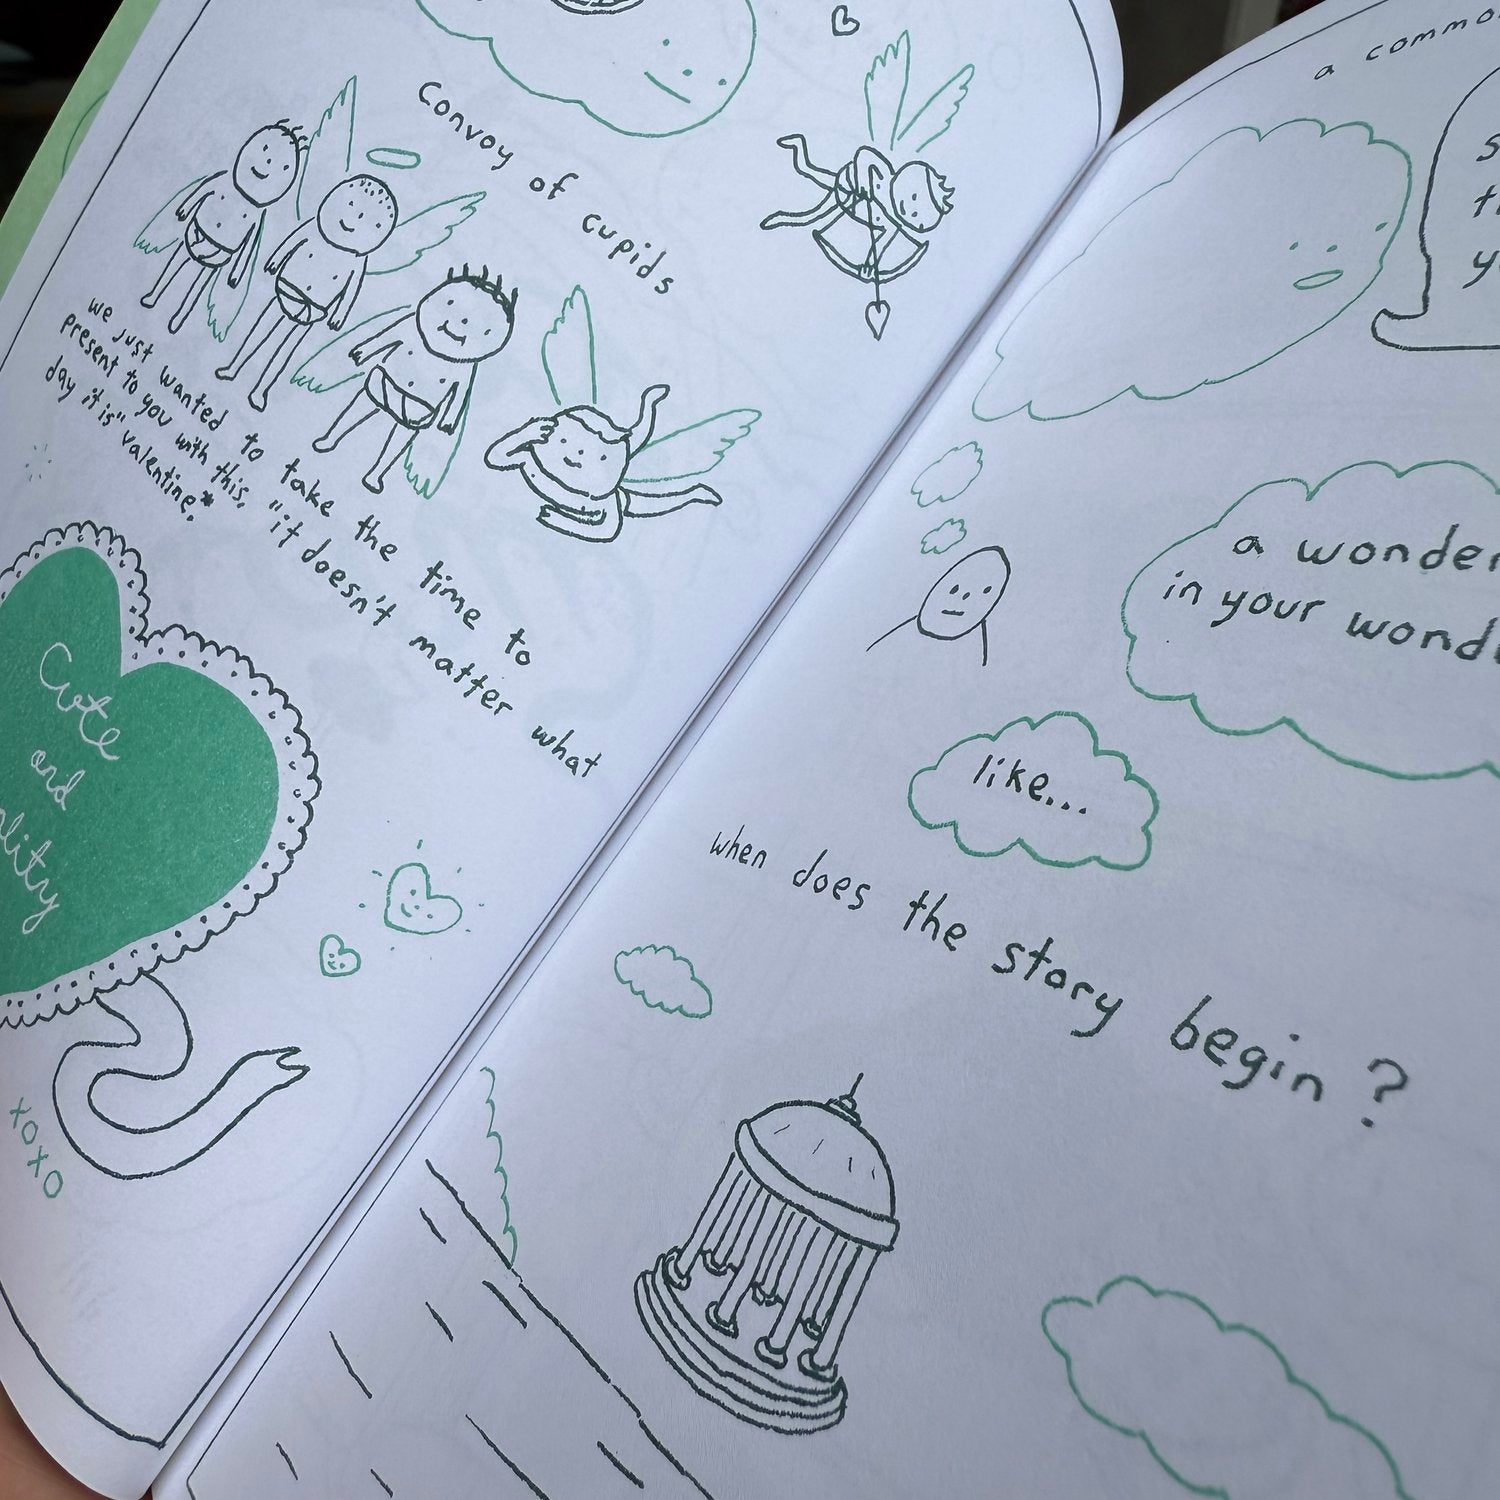 Convoy of cupids
we just wanted to take the time to
present to you with this, "it doesn't matter what
day it is" valentine.*
Cute
and
xoxo
a
a
in your
like...
when does the story begin?